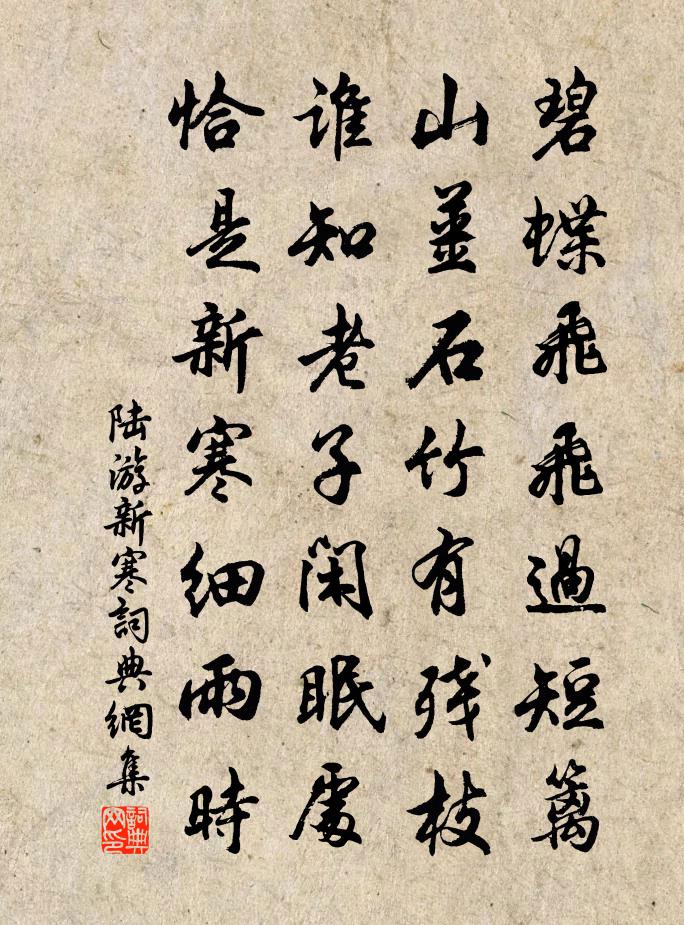 碧蝶飛飛過短籬
山薑石竹有殘枝
誰知老子閑眠處
恰是新寒細雨時
陆游新寒詞典網集
詞典网印